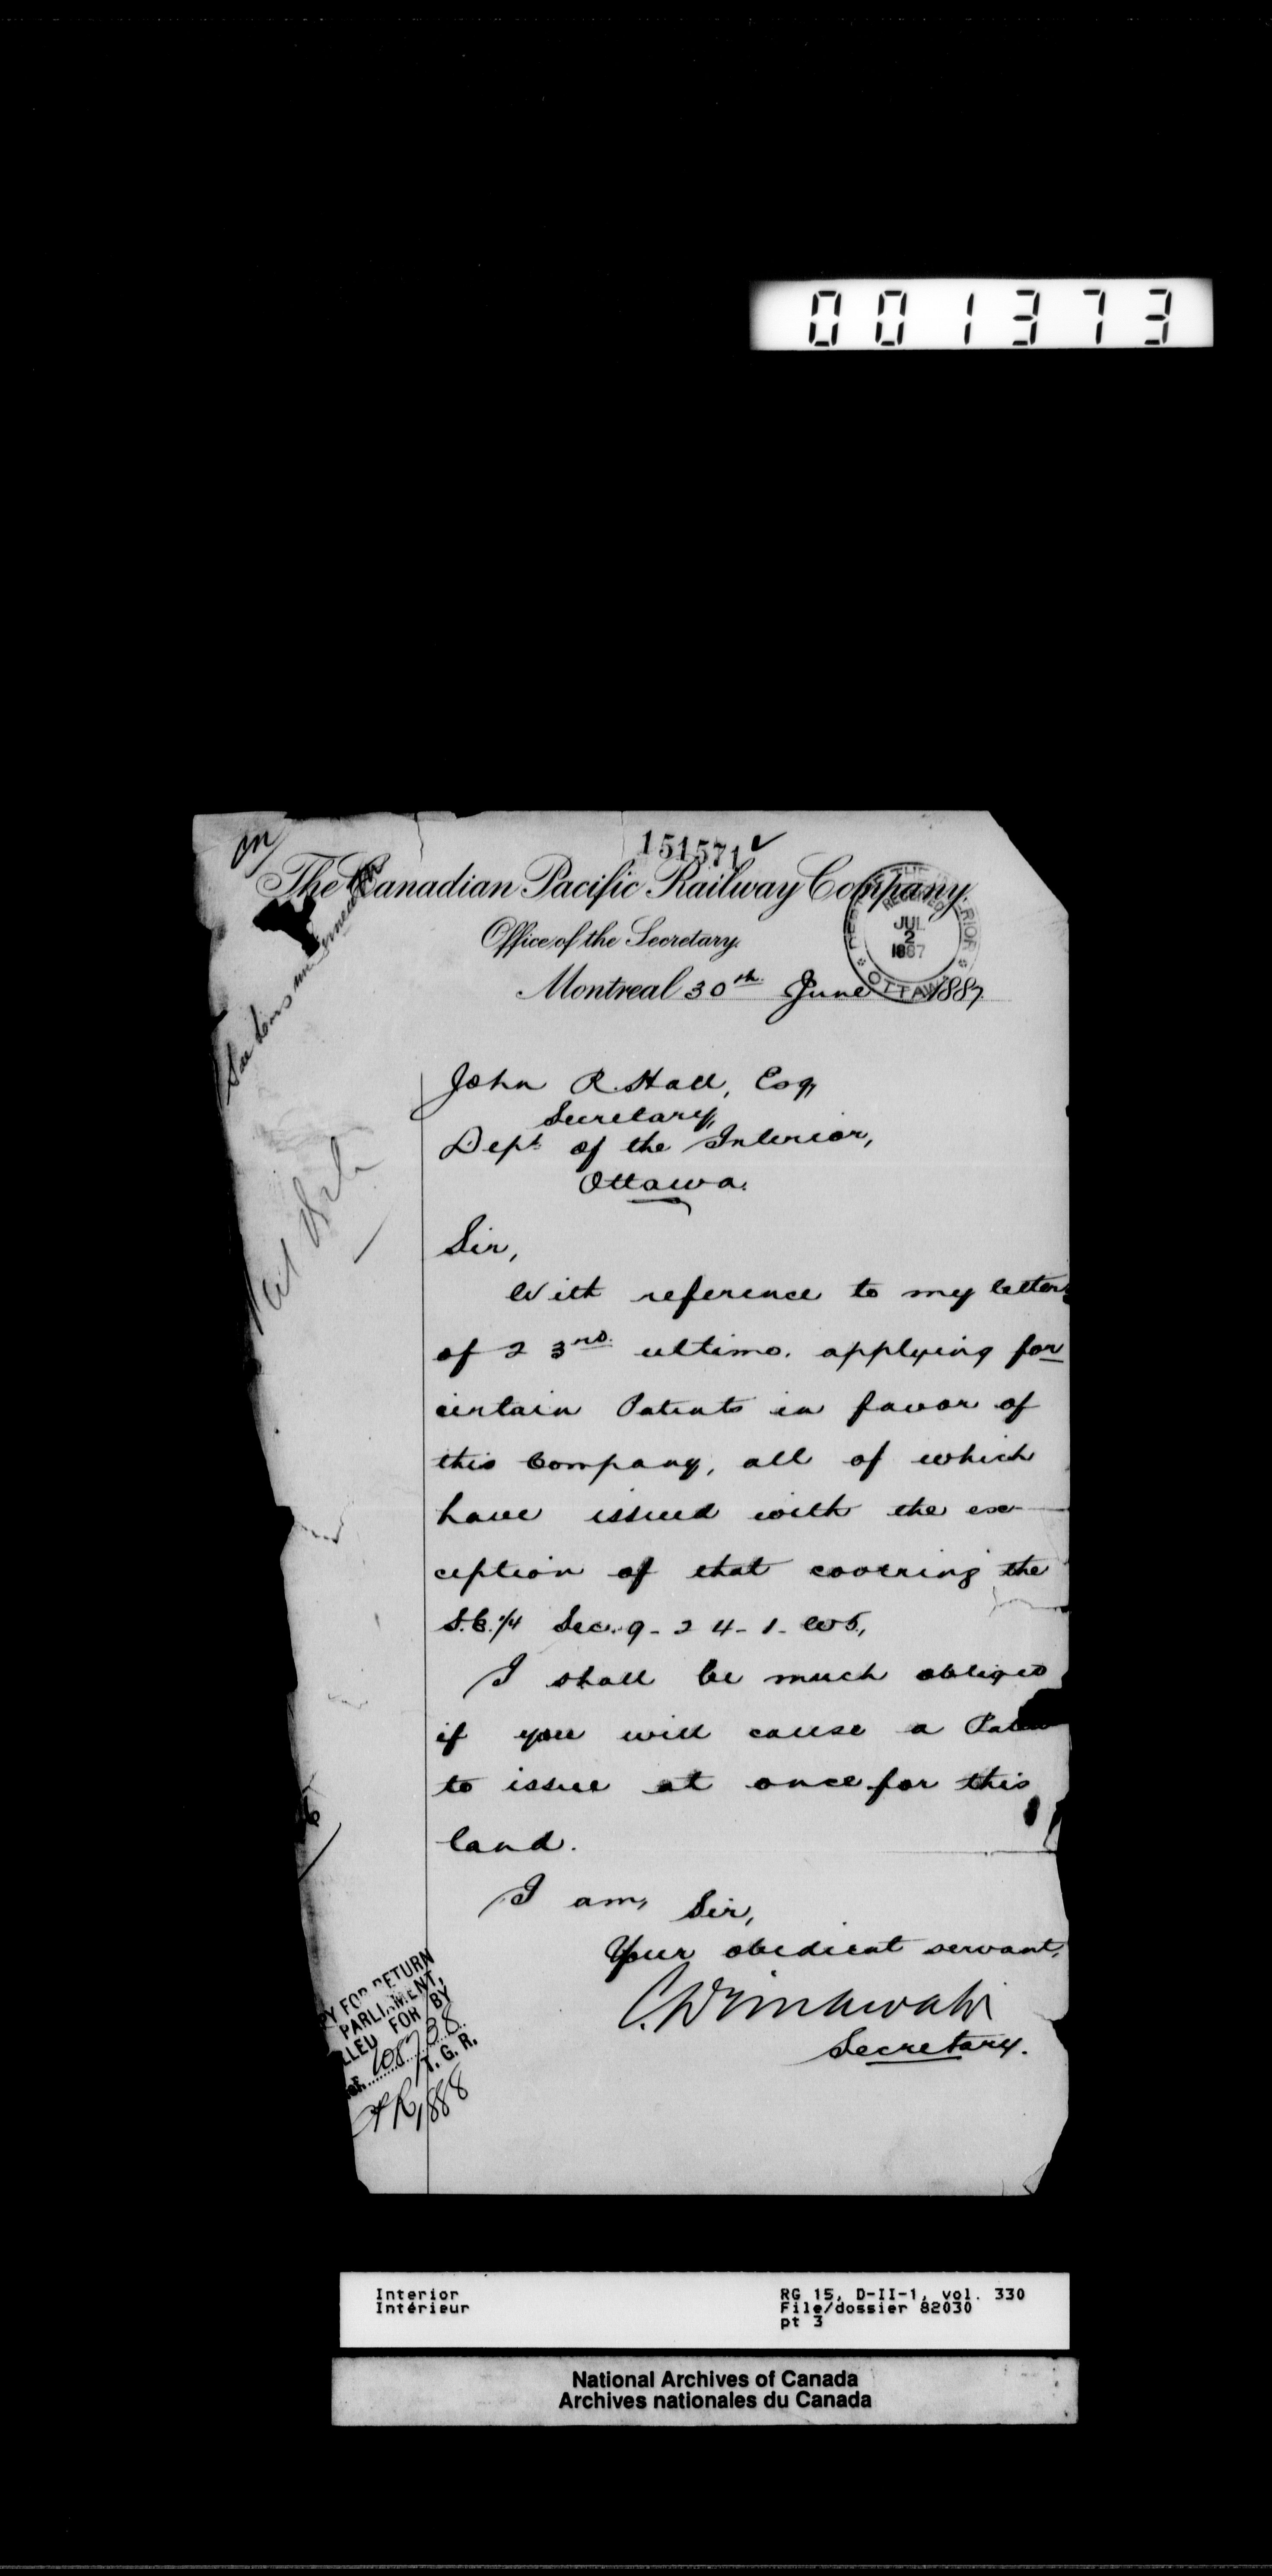 001373
on
151571
The Canadian Pacific Railway Company.
Office of the Secretary.
Montreal 30th June 1887
DEPT OF THE INTERIOR
RECEIVED
JUL
2
1887
OTTAWA
John R. Hall, Esq,
Secretary,
Dept of the Interior,
Ottawa.
Sir,
With reference to my letter
of 23rd ultimo. applying for
certain Patents in favor of
this Company, all of which
have issued with the ex-
ception of that covering the
S.E. 1/4 Sec. 9-24-1-W5,
I shall be much obliged
if you will cause a Patent
to issue at once for this
land.
I am, Sir,
Your obedient servant,
C Drinkwater
Secretary.
PY FOR RETURN
PARLIAMENT,
LLED FOR BY
Ref. 108738
T. G. R.
1888
Interior
Intérieur
RG 15, D-II-1, vol. 330
File/dossier 82030
pt 3
National Archives of Canada
Archives nationales du Canada